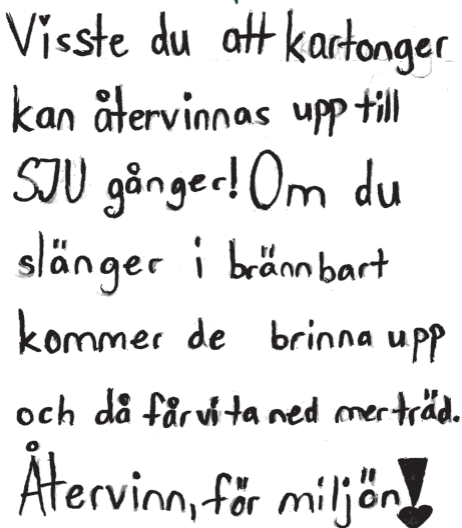 Visste du att kartonger
kan återvinnas upp till
SJU gånger! Om du
slänger i brännbart
kommer de brinna upp
och då får vi ta ned mer träd.
Återvinn, för miljön!